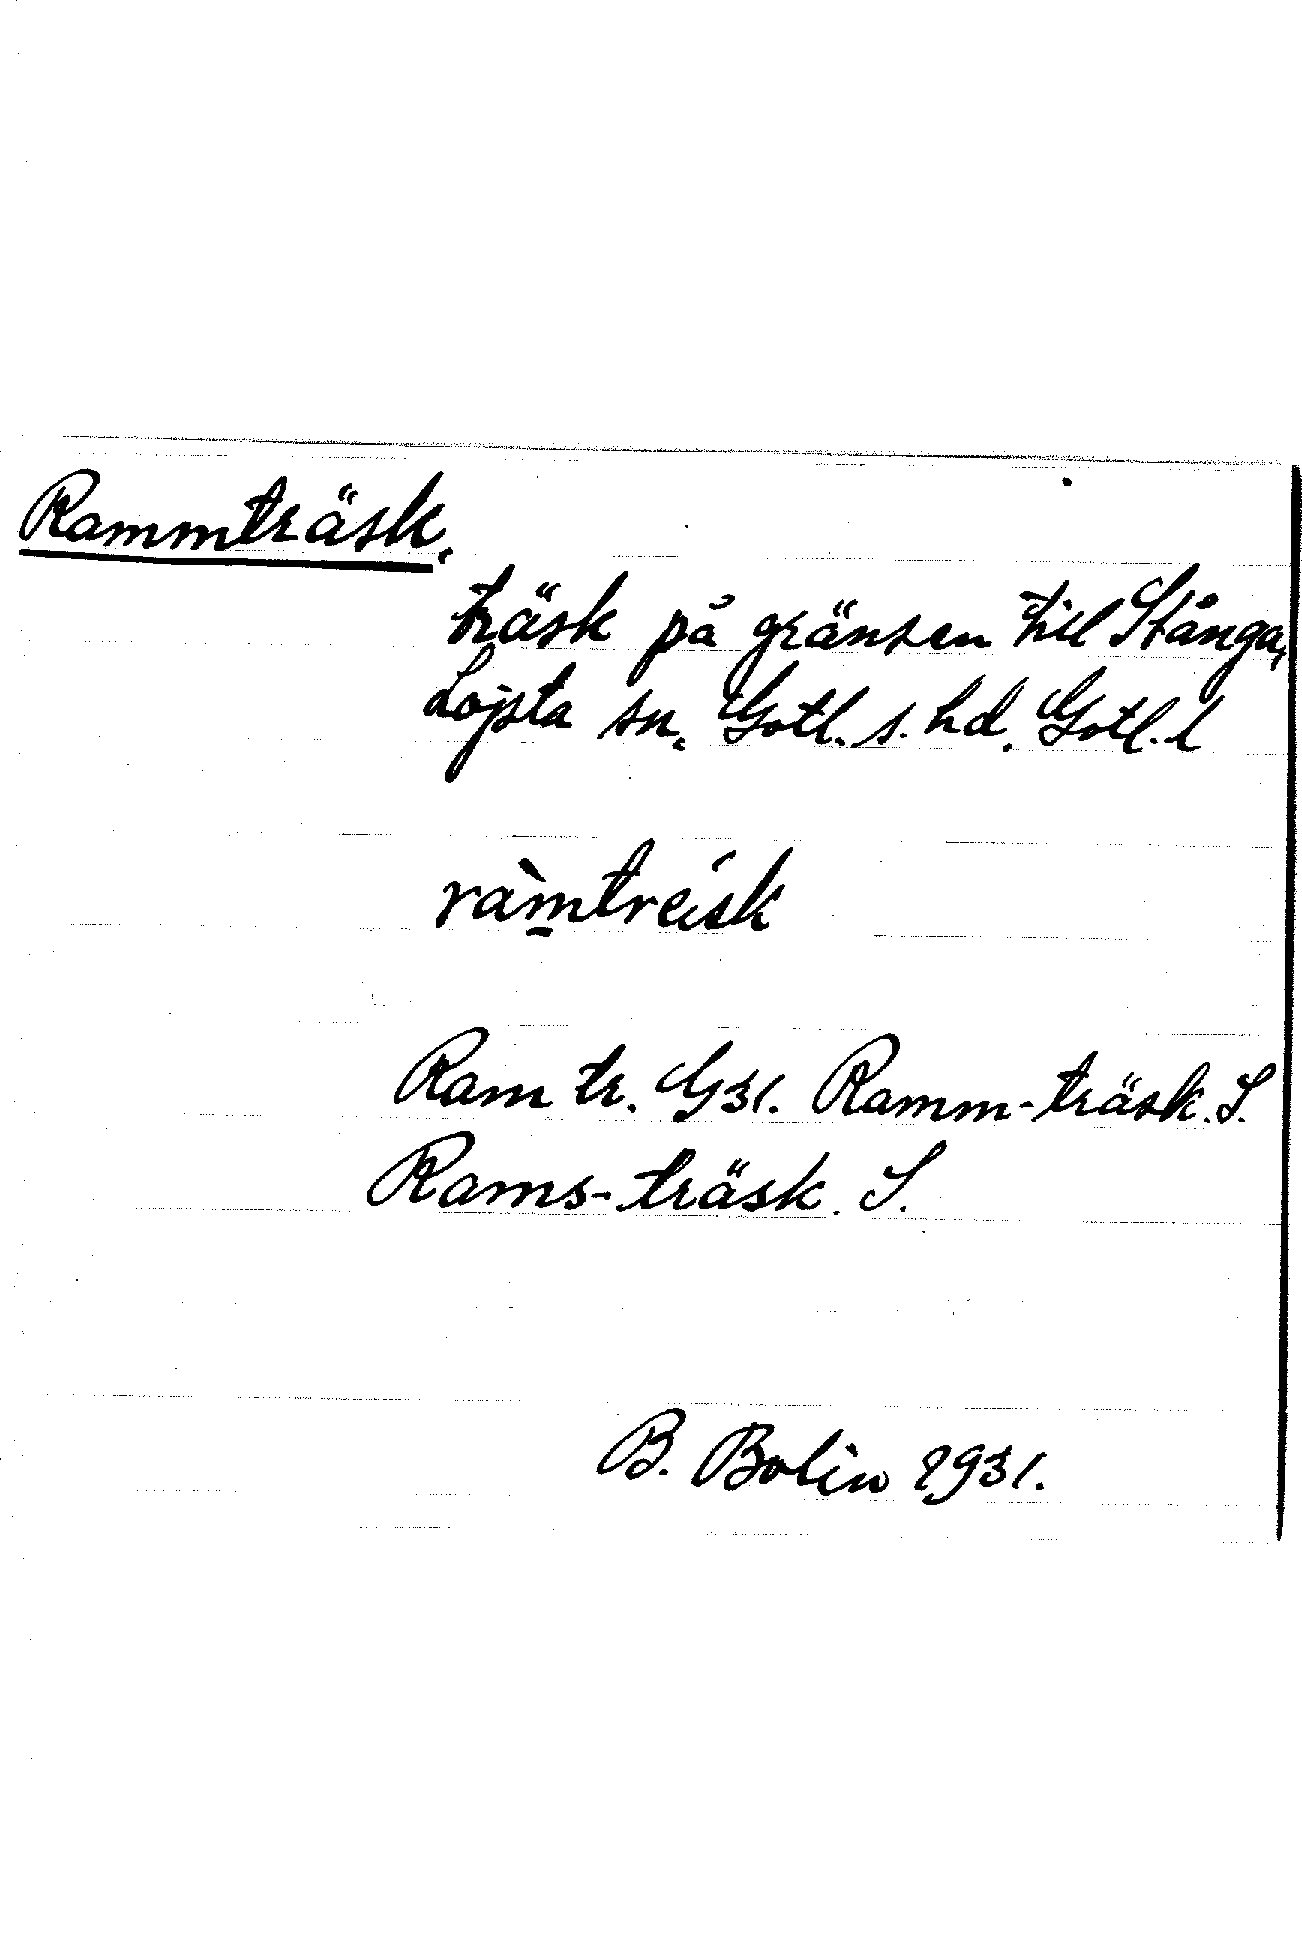 Rammträsk.
träsk på gränsen till Stånga,
Lojsta sn. Gotl. s. hd. Gotl. l
ràm̱treísk
Ram tr. G31. Ramm-träsk. S.
Rams-träsk. S.
B. Bolin 1931.